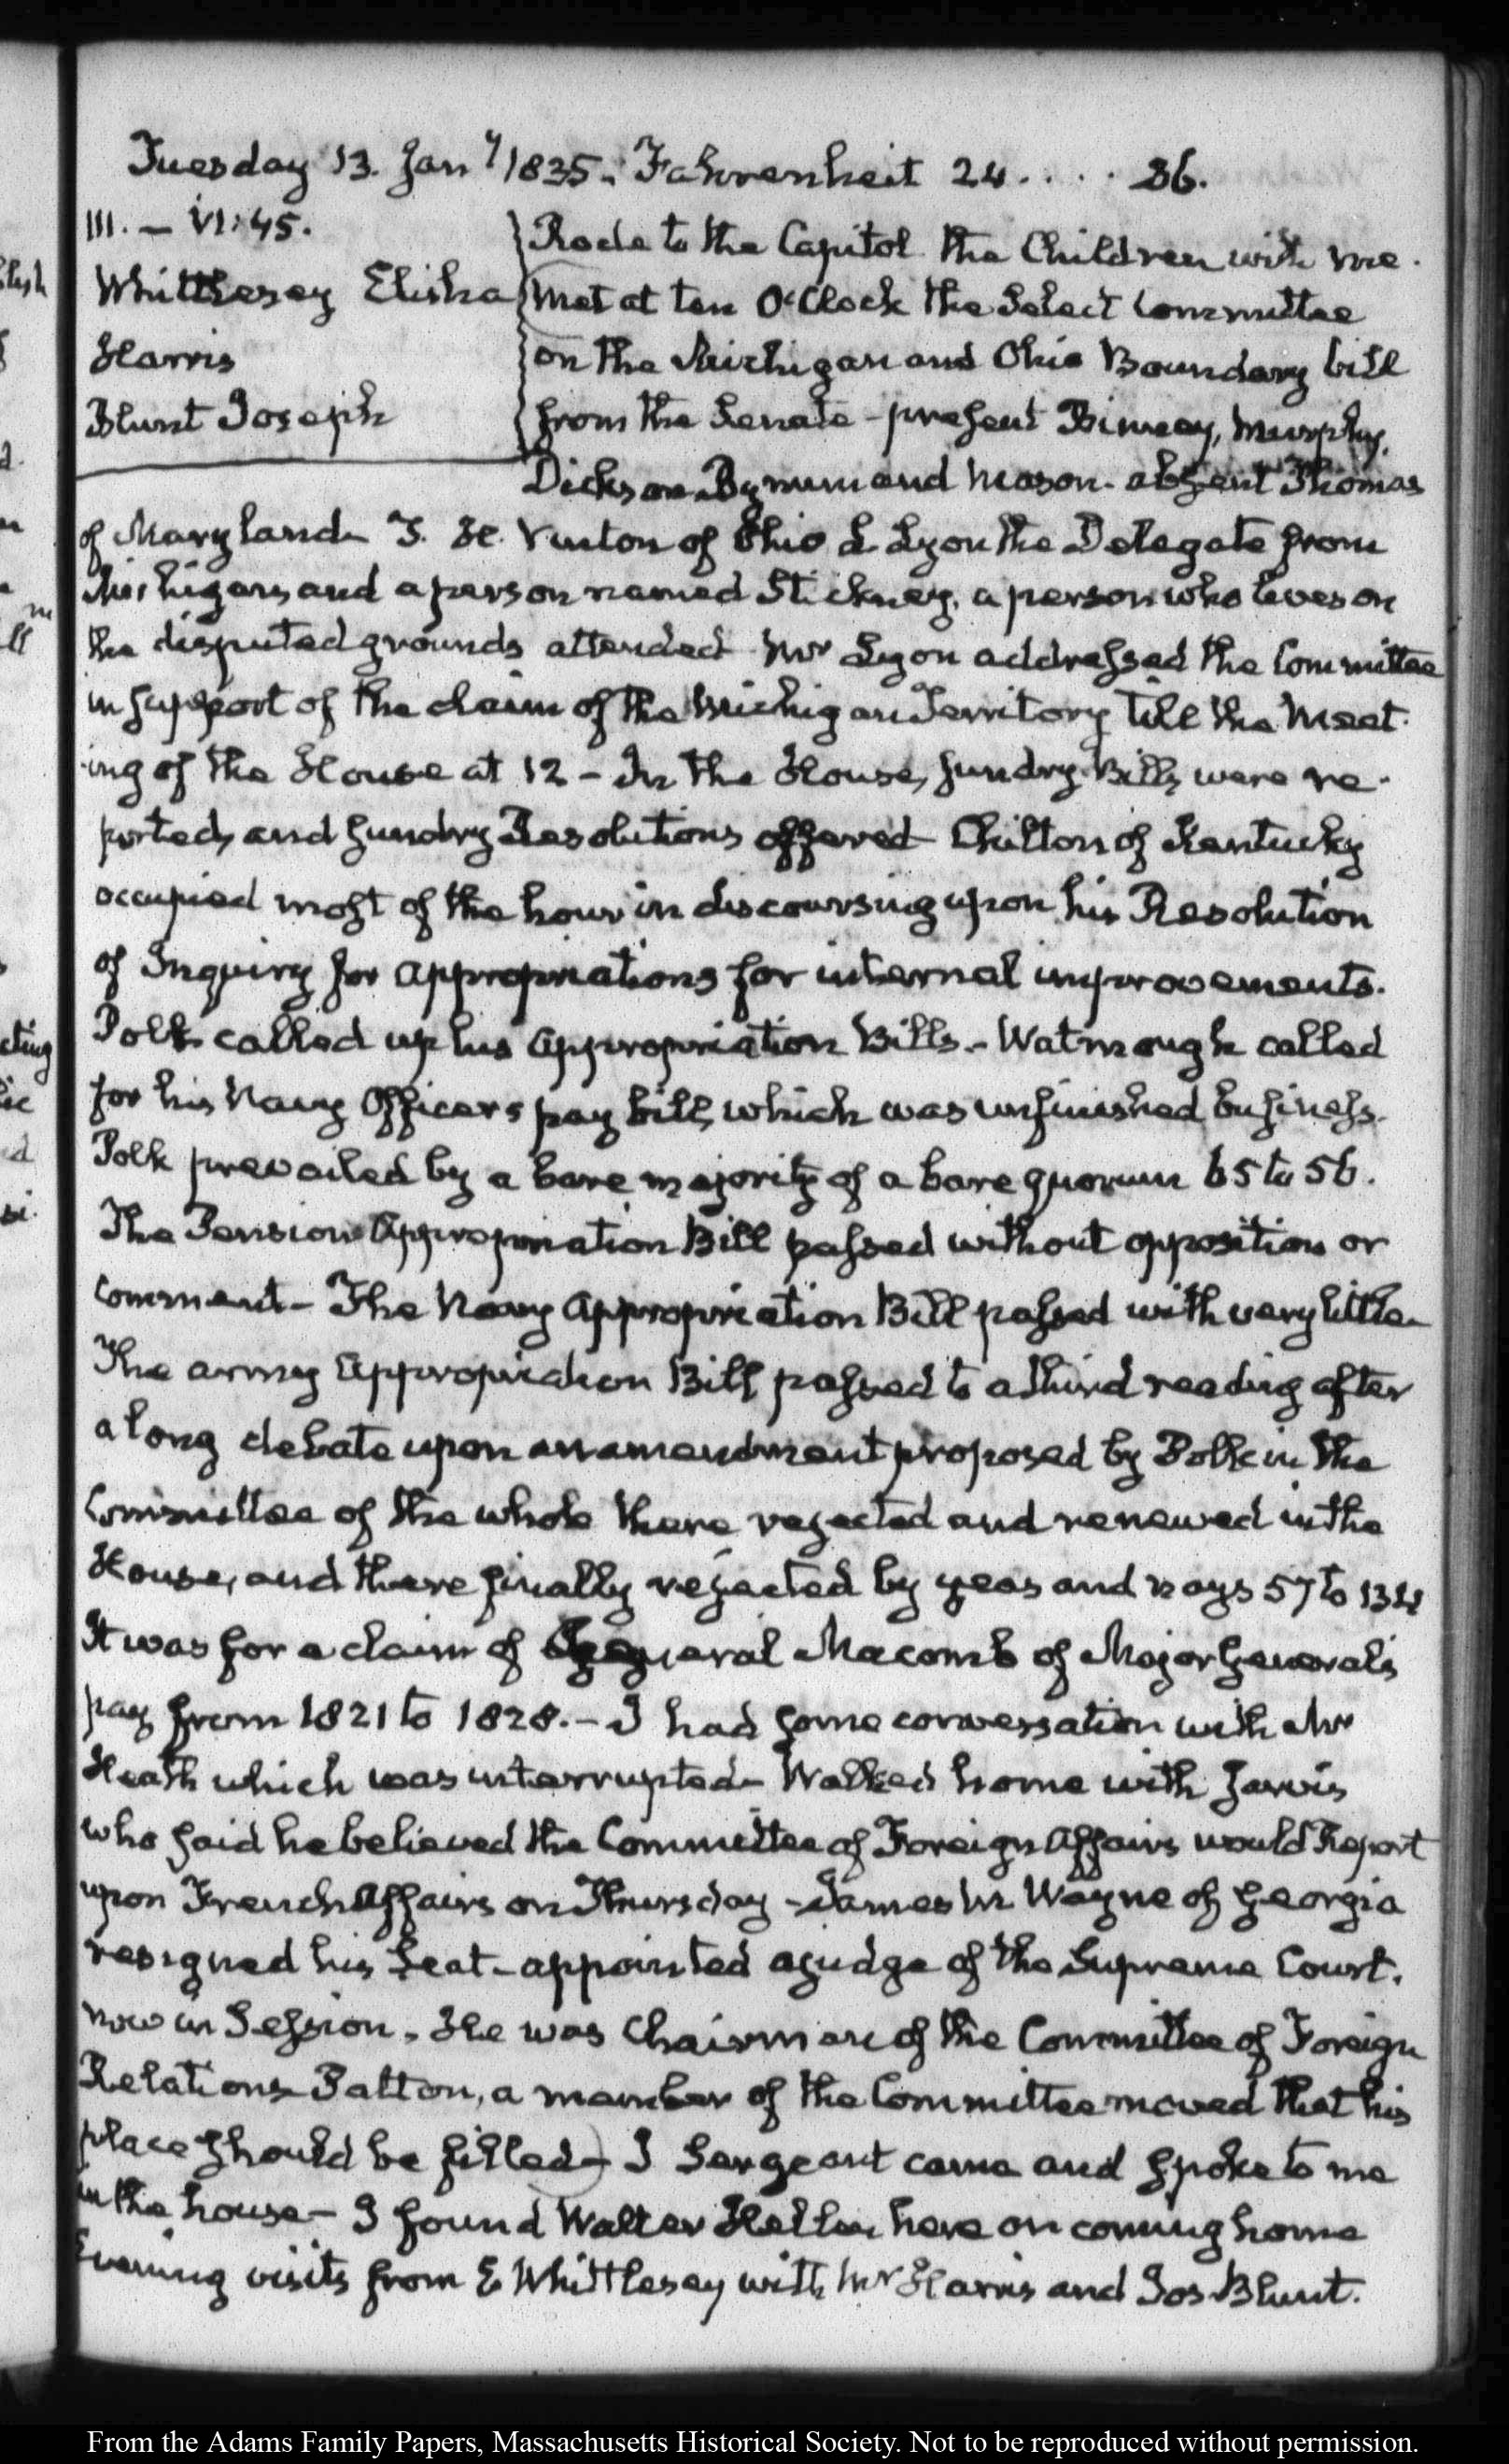 Tuesday 13. Jan.y 1835. Fahrenheit 24 . . . . 36.
III. – VI: 45.
Whittlesey Elisha
Harris
Blunt Joseph
Rode to the Capitol the Children with me.
Met at ten O'Clock the Select Committee
on the Michigan and Ohio Boundary bill
from the Senate – present Binney, Murphy,
Dickson Bynum and Mason – absent Thomas
of Maryland – S. F. Vinton of Ohio L Lyon the Delegate from
Michigan, and a person named Stickney, a person who lives on
the disputed grounds attended – Mr Lyon addressed the Committee
in support of the claim of the Michigan Territory till the meet-
ing of the House at 12 – In the House, sundry Bills were re-
ported, and sundry Resolutions offered – Chilton of Kentucky
occupied most of the hour in discoursing upon his Resolution
of Inquiry for appropriations for internal improvements.
Polk called up his appropriation Bills. – Watmough called
for his Navy Officers pay bill, which was unfinished business.
Polk prevailed by a bare majority of a bare quorum 65 to 56.
The Pension Appropriation Bill passed without opposition or
comment – The Navy appropriation Bill passed with very little –
The army appropriation Bill passed to a third reading after
a long debate upon an amendment proposed by Polk in the
Committee of the whole there rejected and renewed in the
House, and there finally rejected by yeas and nays 57 to 134
It was for a claim of General Macomb of Major General's
pay from 1821 to 1828. – I had some conversation with Mr
Heath which was interrupted – Walked home with Jarvis
who said he believed the Committee of Foreign Affairs would Report
upon French Affairs on Thursday – James M Wayne of Georgia
resigned his Seat – appointed a judge of the Supreme Court.
now in Session. He was Chairman of the Committee of Foreign
Relations – Patton, a member of the Committee moved that his
place should be filled – J Sergeant came and spoke to me
in the house – I found Walter Hellen here on coming home
Evening visits from E Whittlesey with Mr Harris and Jos Blunt.
From the Adams Family Papers, Massachusetts Historical Society. Not to be reproduced without permission.